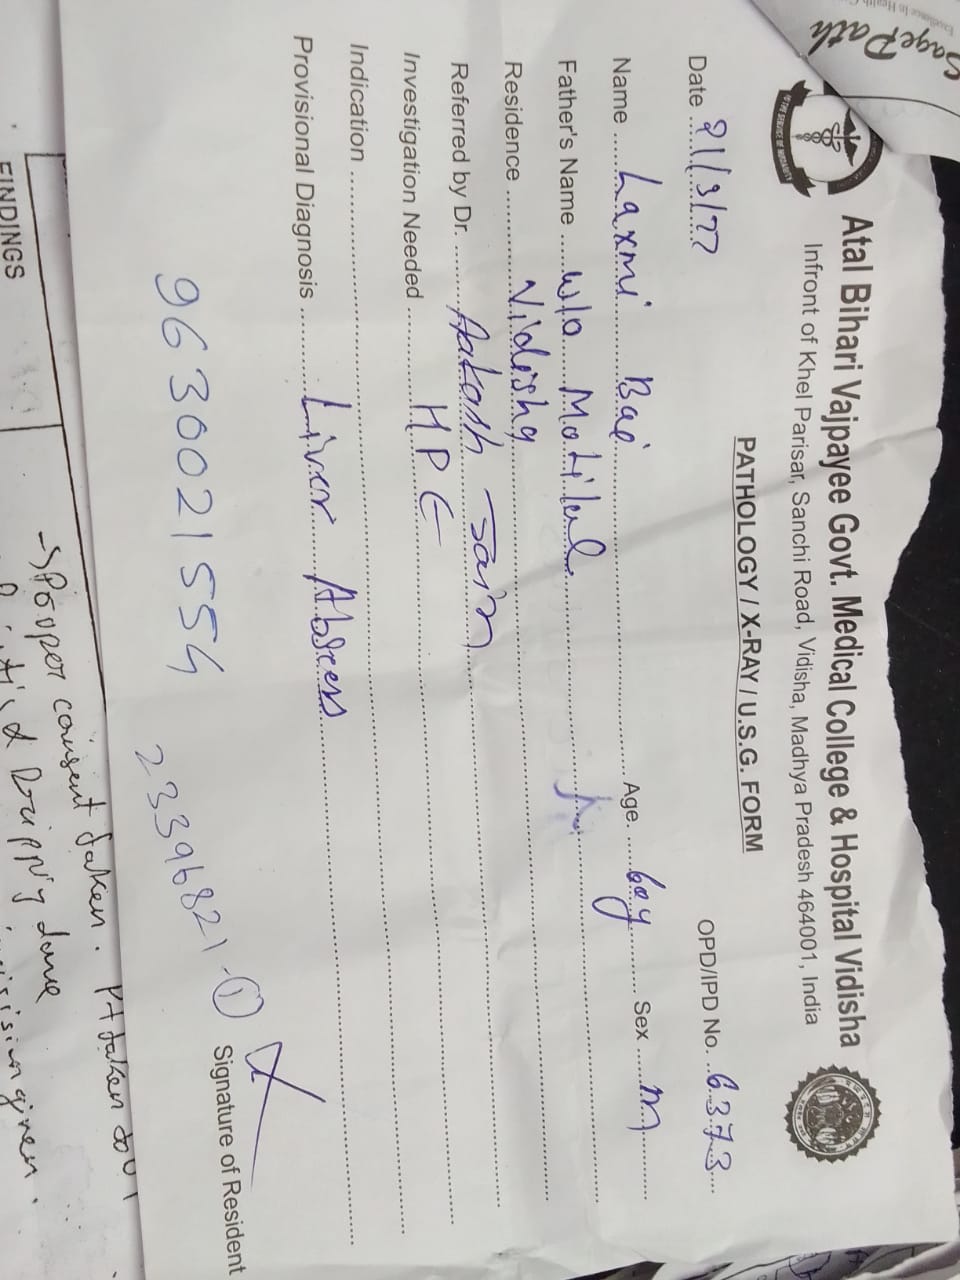 SagePath
Excellence In Health
IN THE SERVICE OF HUMANITY
Atal Bihari Vajpayee Govt. Medical College & Hospital Vidisha
Infront of Khel Parisar, Sanchi Road, Vidisha, Madhya Pradesh 464001, India
PATHOLOGY / X-RAY / U.S.G. FORM
Date 21/3/22 OPD/IPD No. 6373
Name Laxmi Bai Age. 60y Sex M
Father's Name w/o Motilal
Residence Vidisha
Referred by Dr. Aakash Jain
Investigation Needed HPE
Indication
Provisional Diagnosis Liver Abscess
9630021554
23396821 ①
Signature of Resident
FINDINGS
→ Proper consent taken. Pt taken to OT
painting & drapping done
incision given.